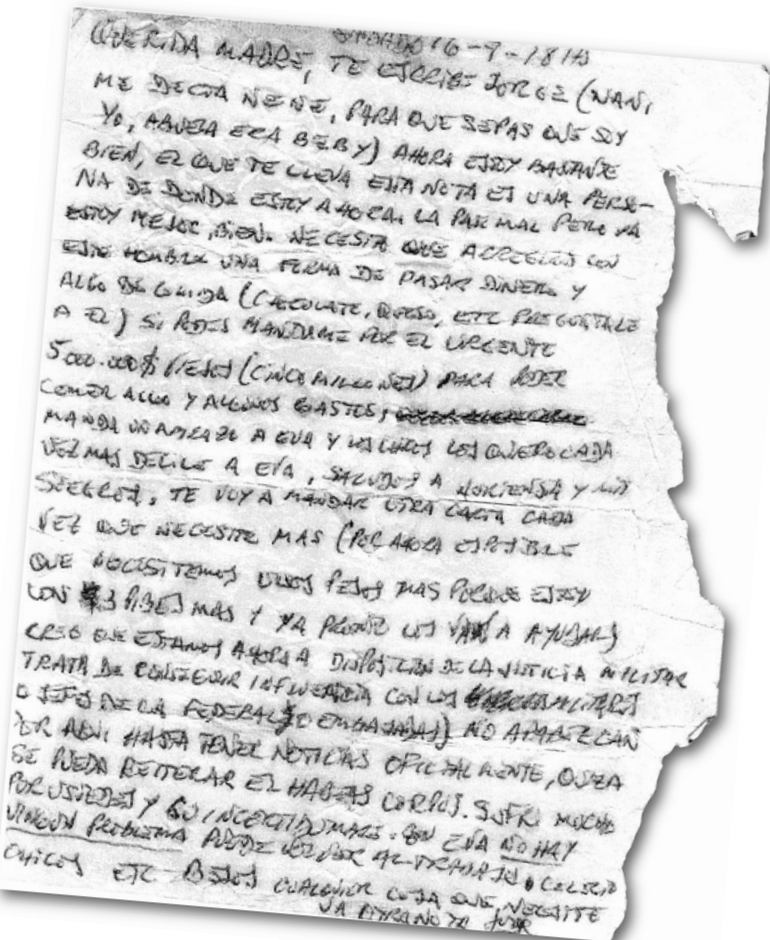 SABADO 16-9-18 HS
QUERIDA MADRE, TE ESCRIBE JORGE (NANI
ME DECIA NENE, PARA QUE SEPAS QUE SOY
YO, ABUELA ERA BEBY) AHORA ESTOY BASTANTE
BIEN, EL QUE TE LLEVA ESTA NOTA ES UNA PERSO-
NA DE DONDE ESTOY AHORA. LA PASE MAL PERO YA
ESTOY MEJOR, BIEN. NECESITO QUE ARREGLES CON
ESTE HOMBRE UNA FORMA DE PASAR DINERO Y
ALGO DE COMIDA (CHOCOLATE, QUESO, ETC PREGUNTALE
A EL) SI PODES MANDAME POR EL URGENTE
5.000.000$ VIEJOS (CINCO MILLONES) PARA PODER
COMER ALGO Y ALGUNOS GASTOS,
MANDA UN ABRAZO A EVA Y LOS CHICOS LOS QUIERO CADA
VEZ MAS DECILE A EVA, SALUDOS A HORTENSIA Y MIS
SUEGROS, TE VOY A MANDAR OTRA CARTA CADA
VEZ QUE NECESITE MAS (POR AHORA ES POSIBLE
QUE NECESITEMOS UNOS PESOS MAS PORQUE ESTOY
CON 3 PIBES MAS Y YA PRONTO LOS VAN A AYUDAR)
CREO QUE ESTAMOS AHORA A DISPOSICION DE LA JUSTICIA MILITAR
TRATA DE CONSEGUIR INFLUENCIA CON LOS MILITARES
O JEFES DE LA FEDERAL O EMBAJADAS) NO APAREZCAN
POR AQUI HASTA TENER NOTICIAS OFICIALMENTE, O SEA
SE PUEDA REITERAR EL HABEAS CORPUS. SUFRI MUCHO
POR USTEDES Y SU INCERTIDUMBRE. CON EVA NO HAY
NINGUN PROBLEMA PUEDE VOLVER AL TRABAJO, COLEGIO
CHICOS ETC BESOS CUALQUIER COSA QUE NECESITE